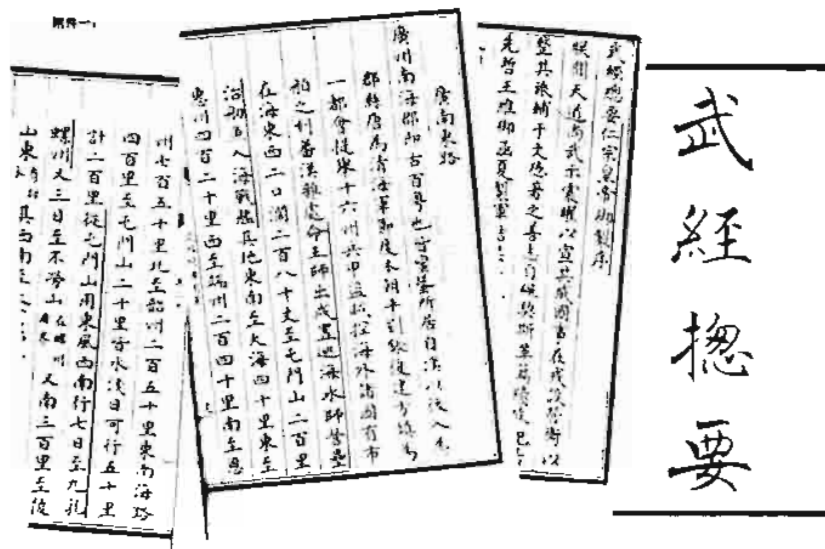 附件一:
武經揔要
武經總要仁宗皇帝御製序
朕聞天道尚武示震曜以宣其威國書在戎設營衛以
整其旅輔于文德著之善志自
先哲王雄御區夏
廣南東路
廣州南海郡即古百粵也皆蠻蜑所居自漢以後入為
郡縣唐為清海軍節度本朝平劉鋹復建方鎮為
一都會提舉十六州兵甲盜賊控海外諸國有市
舶之利蕃漢雜處命王師出戍置巡海水師營壘
在海東西二口濶二百八十丈至屯門山二百里
治舠魚入海戰艦其地東南至大海四十里東至
惠州四百二十里西至端州二百四十里南至恩
州七百五十里北至韶州二百五十里東南海路
四百里至屯門山二十里皆水淺日可行五十里
計二百里從屯門山用東風西南行七日至九乳
螺州又三日至不勞山 又南三百里至陵
山東 其西南至